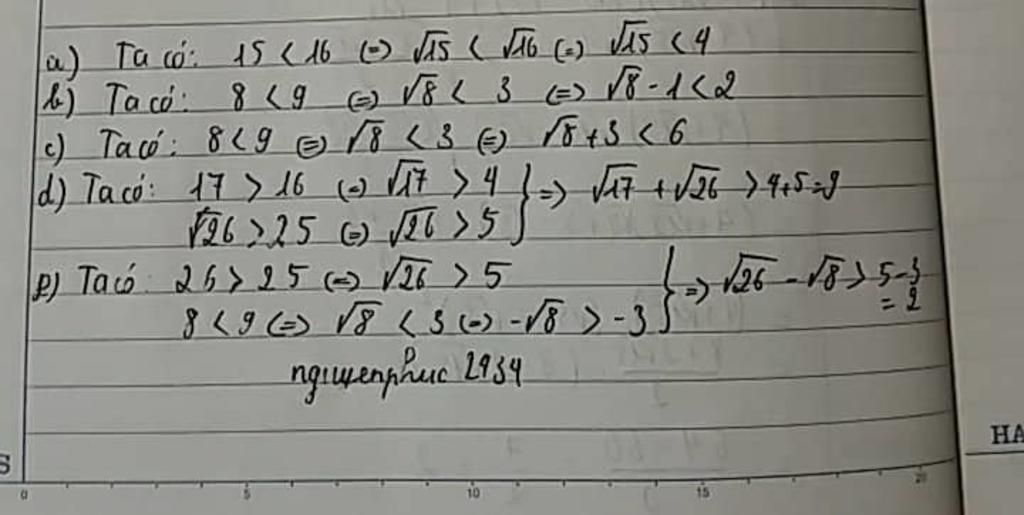 a) Ta có: 15 < 16 (=) √15 < √16 (=) √15 < 4
b) Ta có: 8 < 9 (=) √8 < 3 (=) √8 - 1 < 2
c) Ta có: 8 < 9 (=) √8 < 3 (=) √8 + 3 < 6
d) Ta có: 17 > 16 (=) √17 > 4 } => √17 + √26 > 4+5=9
√26 > 25 (=) √26 > 5
e) Ta có: 26 > 25 (=) √26 > 5 } => √26 - √8 > 5-3 = 2
8 < 9 (=) √8 < 3 (=) -√8 > -3
nguyenphuc 2934
S
HA
0 5 10 15 20